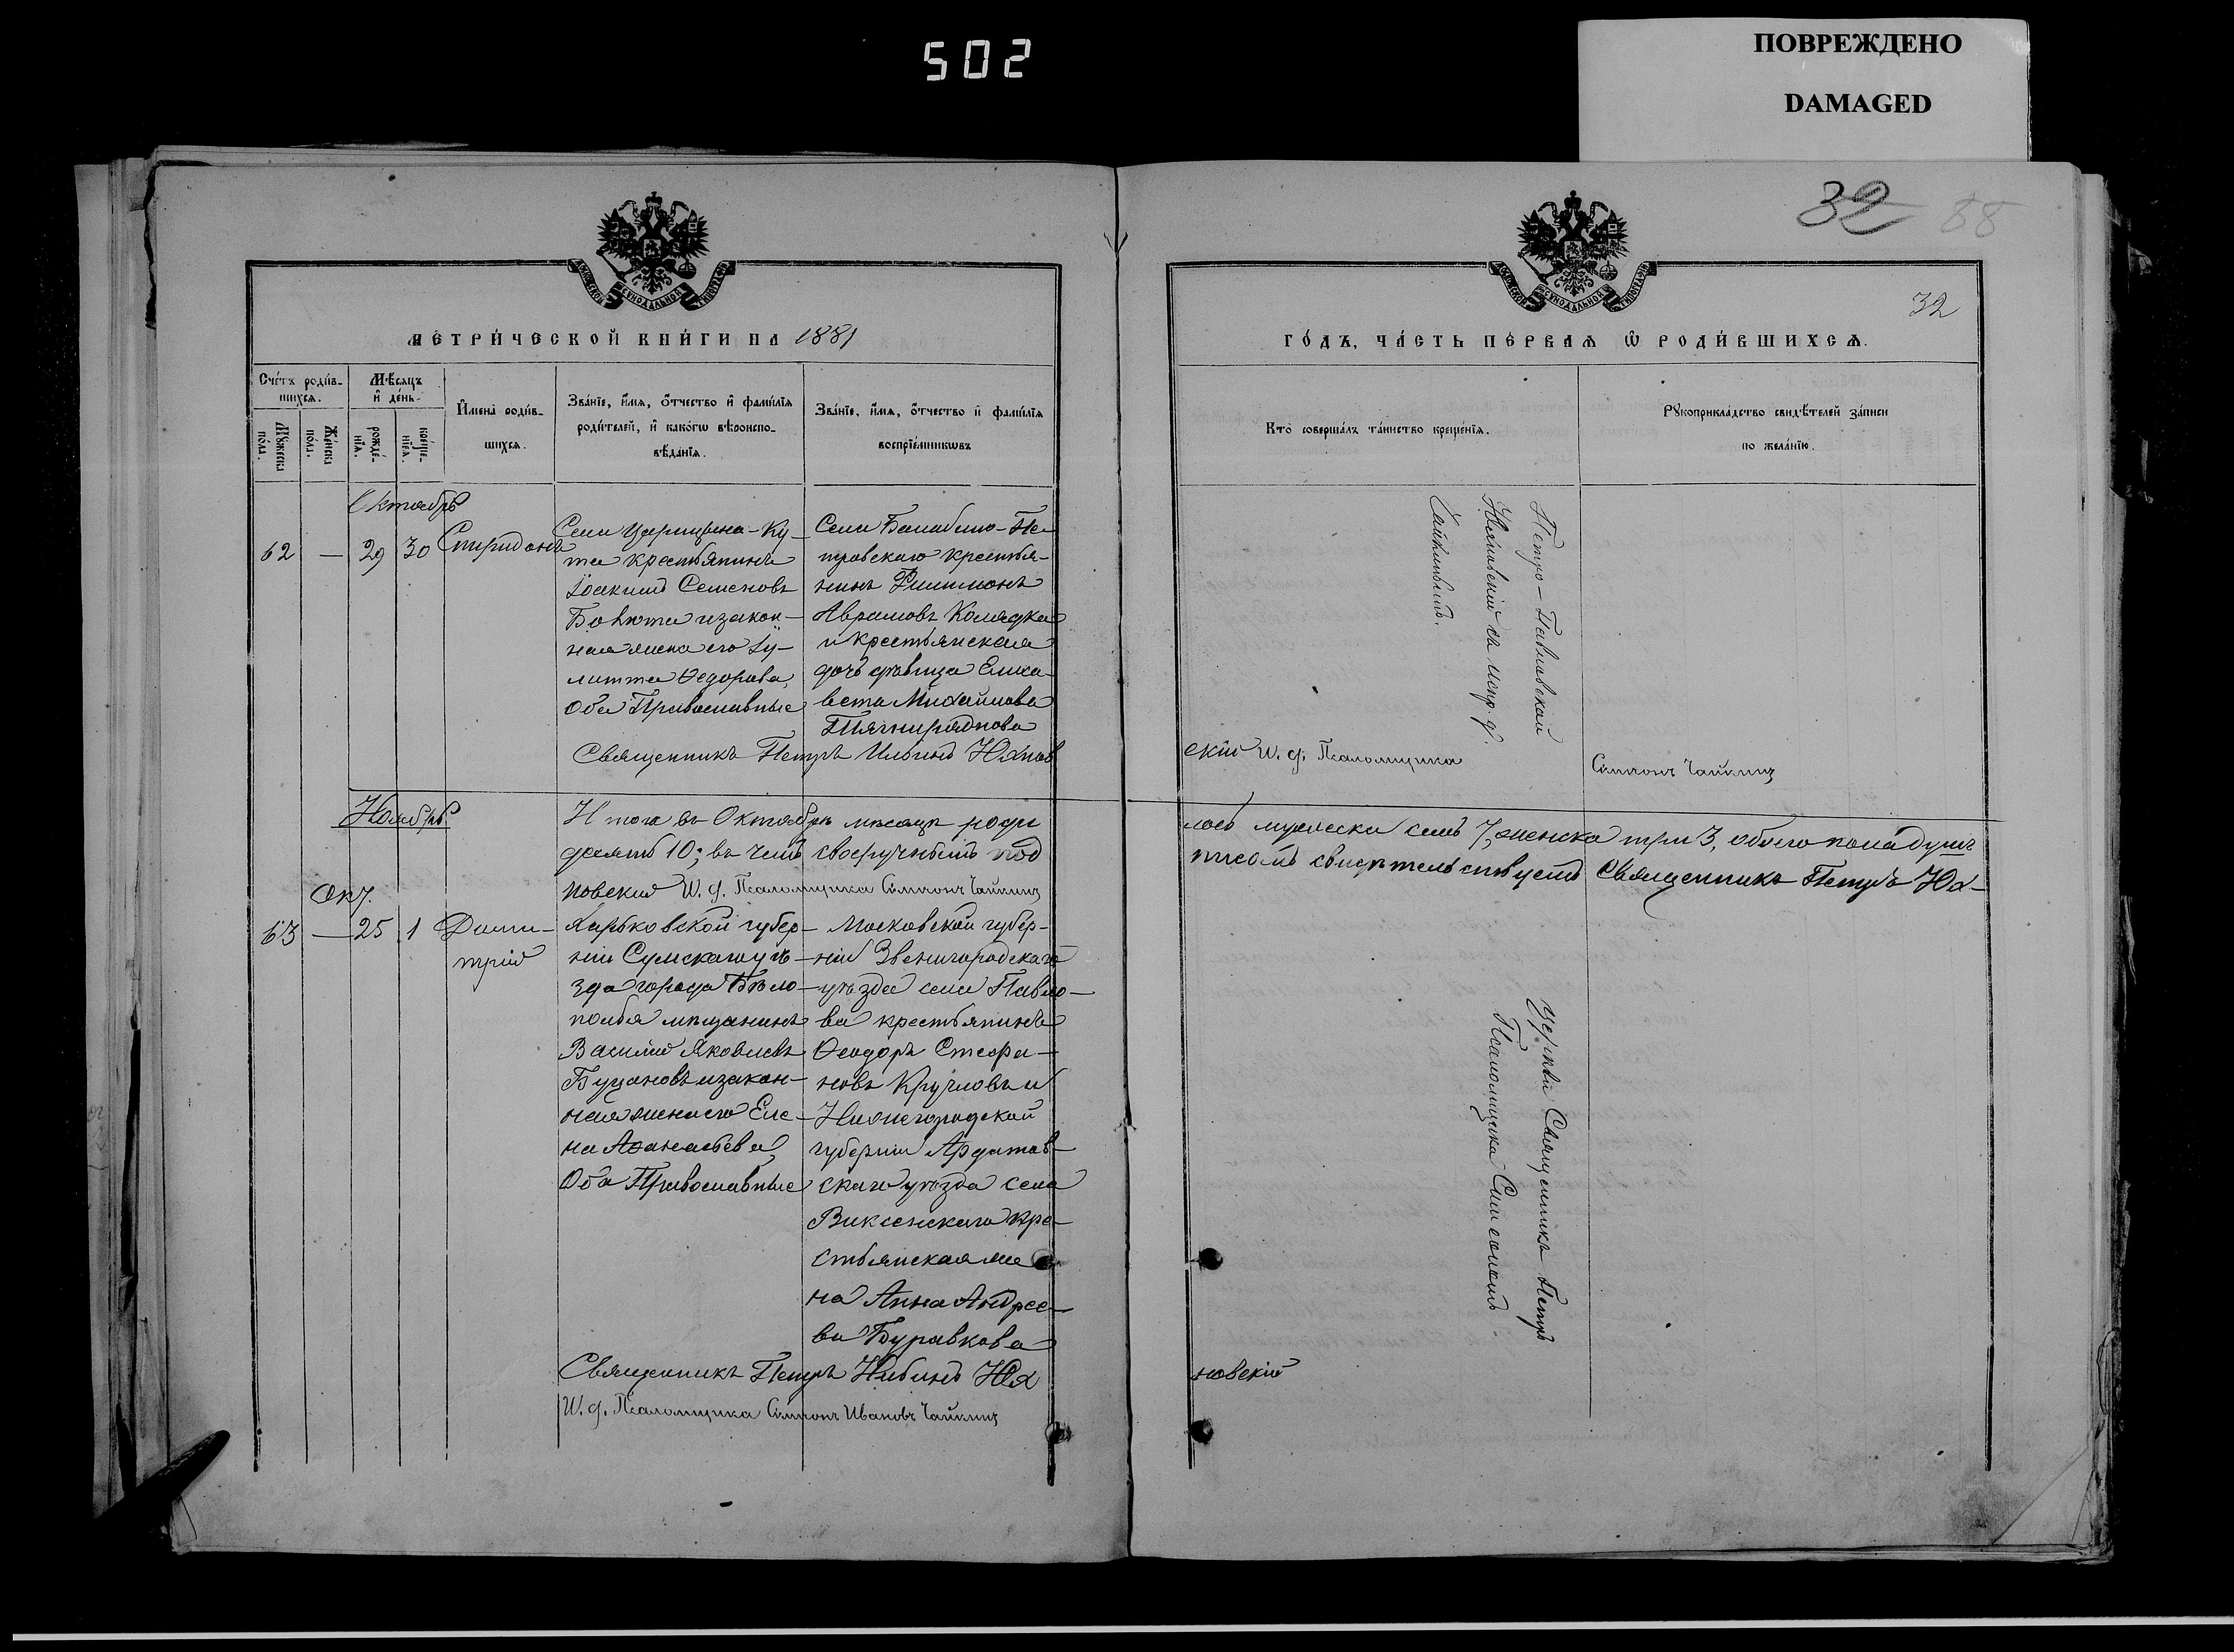 502
ПОВРЕЖДЕНО
DAMAGED
32 88
32
МЕТРИ́ЧЕСКОЙ КНИ́ГИ НА 1881
ГО́ДЪ, ЧА́СТЬ ПЕ́РВАЯ Ѿ РОДИ́ВШИХСЯ.
Сче́тъ роди́в-
шихся.
Мѣ́сяцъ
и де́нь.
Му́жеска
по́лъ.
Же́нска
по́лъ.
рожде́-
нїя.
креще́-
нїя.
Имена̀ роди́в-
шихся.
Зва́нїе, и́мя, о́тчество и фами́лїя
роди́телей, и како́гѡ вѣроиспо-
вѣ́данїя.
Зва́нїе, и́мя, о́тчество и фами́лїя
воспрїе́мникѡвъ
Кто̀ соверша́лъ та́инство креще́нїя.
Рукоприкла́дство свидѣ́телей за́писи
по жела́нїю.
Октябрь
62 — 29 30 Спиридонъ
Села Царицына-Ку-
та крестьянинъ
Іоакимъ Семеновъ
и закон-
ная жена его Іу-
литта Ѳедорова,
Оба Православные
Села Балабино-Пе-
тровскаго крестья-
нинъ Филимонъ
Аврамовъ Коляда
и крестьянская
дочь дѣвица Елиса-
вета Михайлова
Петро-Павловской
и испр. д.
Чайкинымъ.
Священникъ Петръ Ильинъ Юхнов
скій И. д. Псаломщика Симеонъ Чайкинъ
Ноябрь
Итого въ Октябрѣ мѣсяцѣ роди
лось мужеска семь 7, женска три 3, обоего пола душъ
десять 10; въ чемъ своеручнымъ под
писомъ свидѣтельствуемъ Священникъ Петръ Юх-
новскій И. д. Псаломщика Симеонъ Чайкинъ
Окт.
63 — 25 1 Дими-
трій
Харьковской губер-
ніи Сумскаго уѣ-
зда города Бѣло-
полья мѣщанинъ
Василій Яковлевъ
Буцановъ и закон-
ная жена его Еле-
на Аѳанасьева,
Оба Православные
Московской губер-
ніи Звенигородскаго
уѣзда села Павло-
ва крестьянинъ
Ѳеодоръ Стефа-
новъ Кругловъ и
Нижегородской
губерніи Ардатов-
скаго уѣзда села
Виксенскаго кре-
стьянская же
на Анна Андрее-
ва Буравкова
Церкви Священникъ Петръ
Псаломщика Симеономъ
Священникъ Петръ Ильинъ Юх
новскій
И. д. Псаломщика Симеонъ Ивановъ Чайкинъ